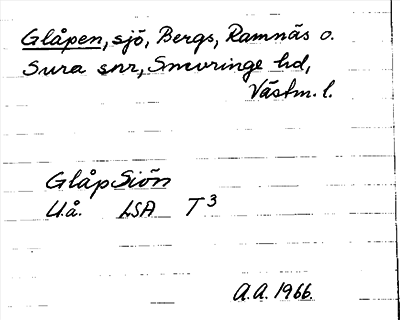 Glåpen, sjö, Bergs, Ramnäs o.
Sura snr, Snevringe hd,
Västm. l.
Glåp Siön
U.å. LSA T3
A.A. 1966.